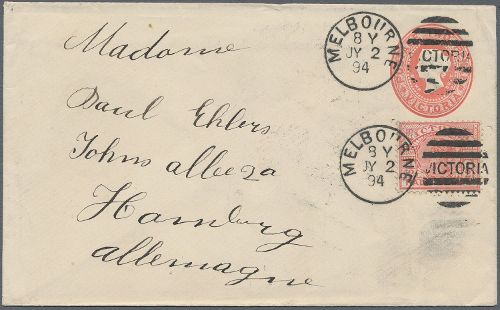 Madame
Paul Ehlers
Johns albeza
Hamburg
Allemagne
MELBOURNE
8 Y
JY 2
94
VICTORIA
MELBOURNE
8 Y
JY 2
94
VICTORIA